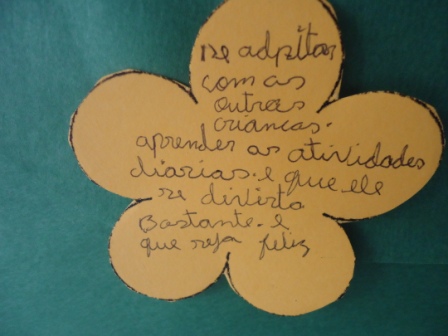 se adpitar
com as
outras
crianças.
aprender as atividades
diarias. e que ele
se divirta
Bastante. e
que seja feliz